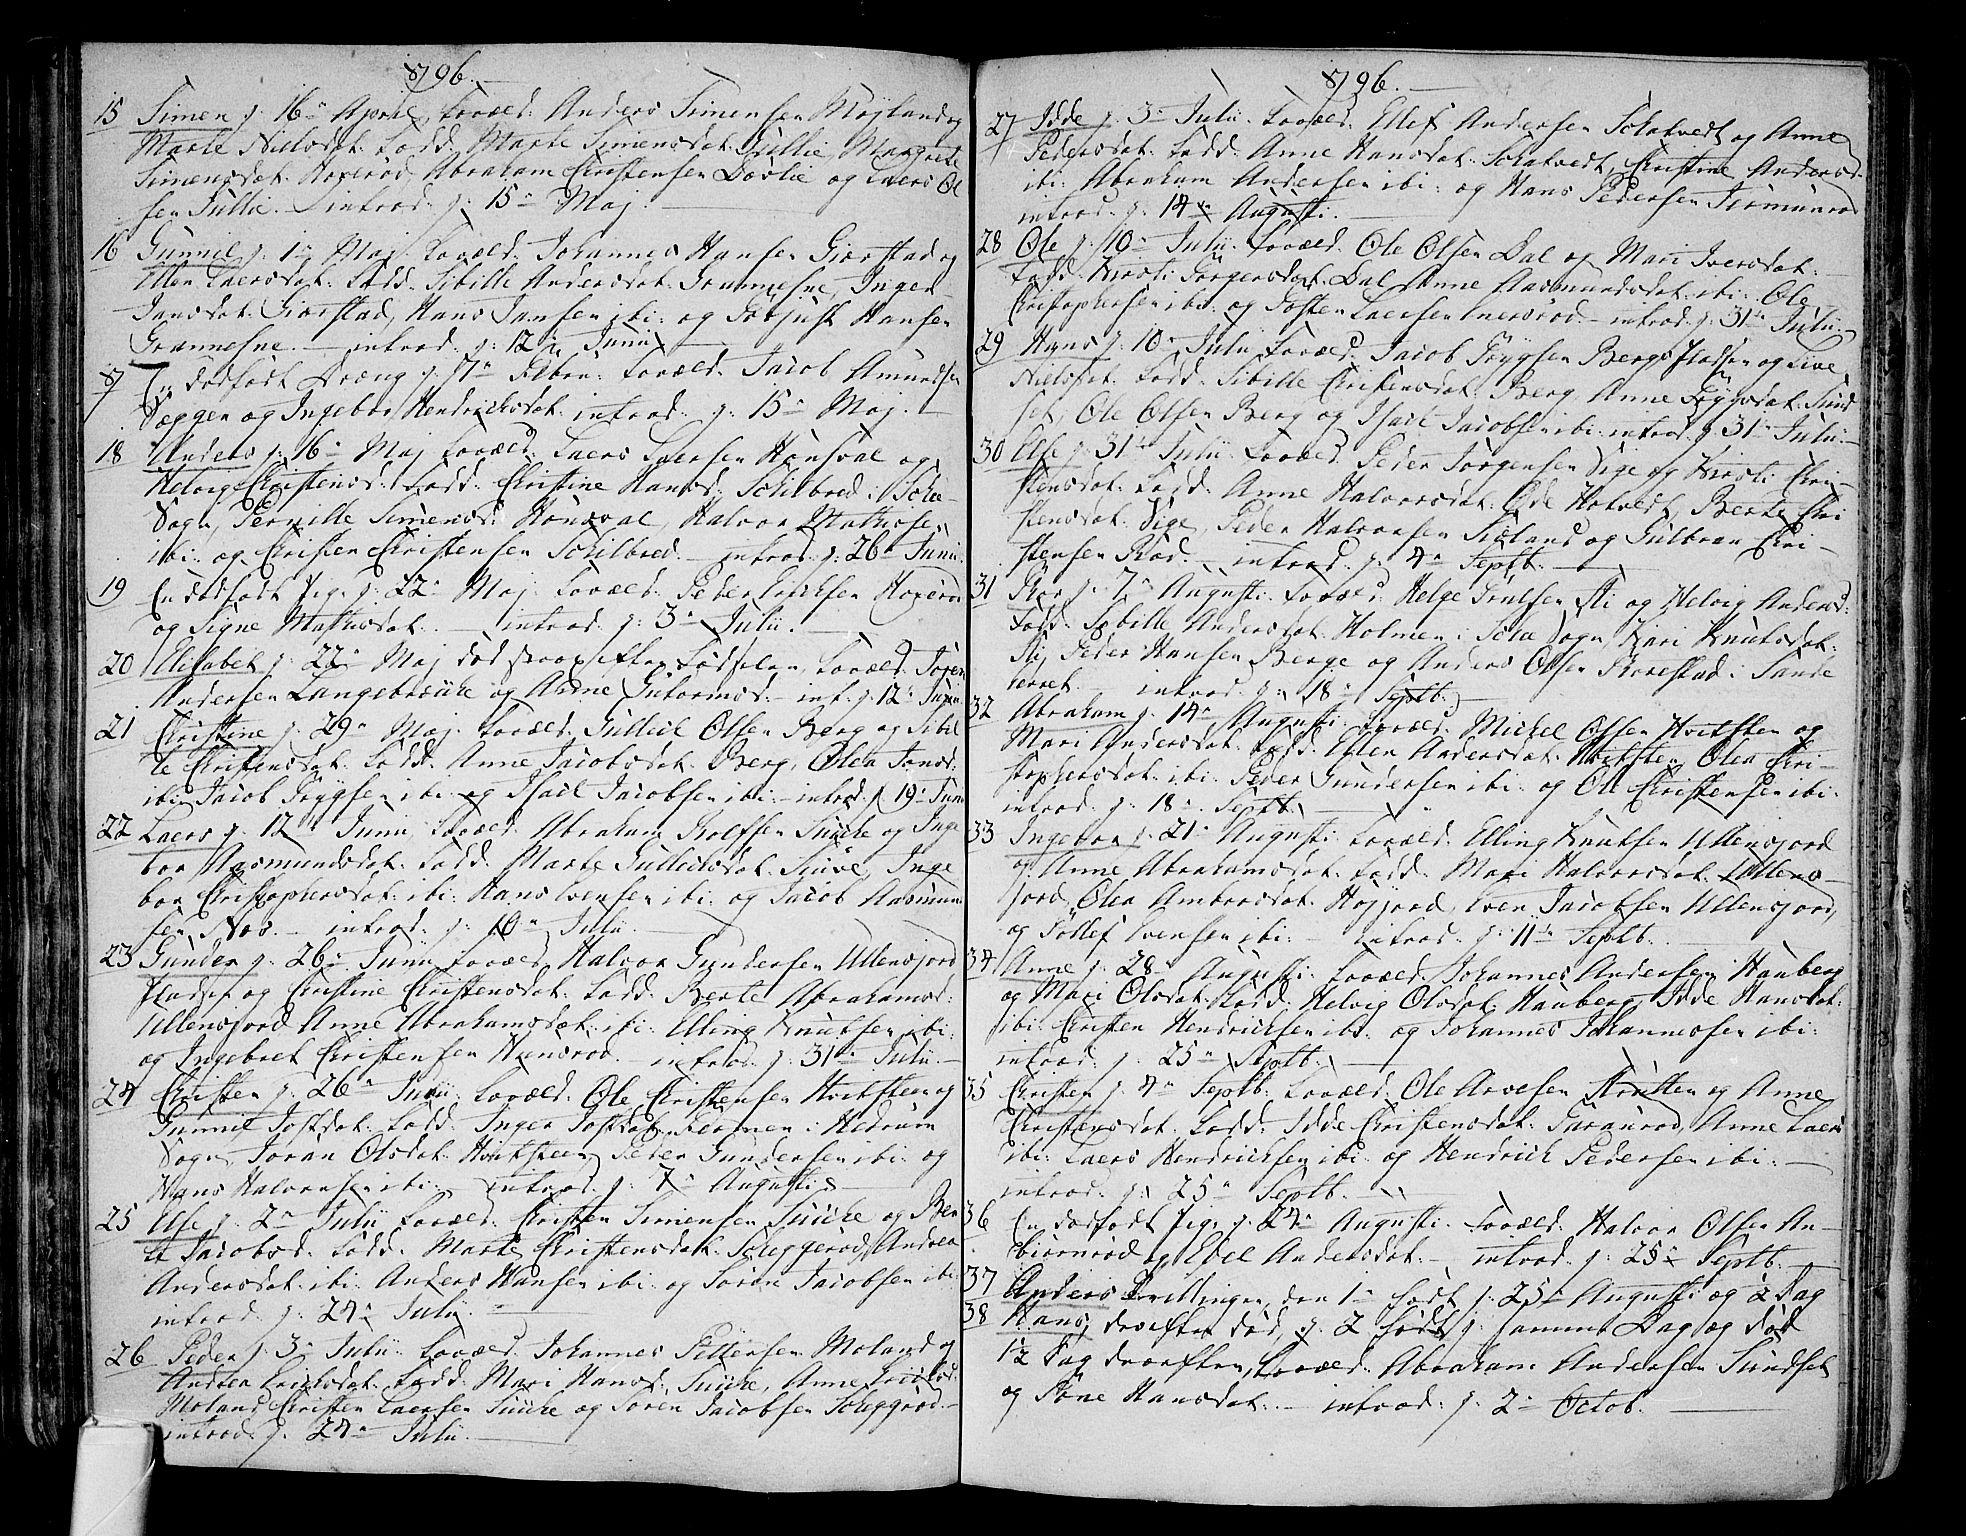 1796.
15 Simen g: 16de Aprile Foræld: Anders Simensen Mojland og
Marte Nielsdat: Fadd: Marte Simensdat: Gullie, Margrete
Simensdat: Hoxerød, Abraham Christensen Døvlie og Laers Ol
sen Gullie. introd: g: 15de Maj.
16 Gunnil g: 1de Maj. Foræld: Johannes Hansen Giærstad og
Ellen Laersdat: Fadd: Sibille Andersdat: Grannesne, Inger
Jansdat: Giærstad, Hans Jansen ibi: og Hansen
Grannesne. introd: g: 12de Junii
17 En dødfødt Dræng g: 7de Febr: Foræld: Jacob Amundsen
Væggen og Ingebor Hendrichsdat: introd: g: 15de Maj.
18 Anders g: 16de Maj Foræld: Laers Laersen Honsval og
Helvig Christensd: Fadd: Christine Hansd: Schilbred i Sche
Sogn, Pernille Simensd: Honsval, Halvor Mathisen
ibi: og Christen Christensen Schilbred. introd: g: 26de Junii
19 En dødfødt Pige g: 22de Maj. Foræld: Peder Erichsen Hoxerød
og Signe Mathisdat: introd: g: 3de Julii.
20 Elisabet g: 22de Maj død strax efter Fødselen, Foræld: Jørgen
Andersen Langebrekke og Anne Gutormsd: int: g: 12de Junii
21 Christine g: 29de Maj. Foræld: Gulleic Olsen Berg og Sibil
le Christensdat: Fadd: Anne Jacobsdat: Berg, Olea Jansd:
ibi: Jacob Trygsen ibi: og Isach Jacobsen ibi: introd: g: 19de Junii
22 Laers g: 12de Junii Foræld: Abraham Rolfsen Suuke og Inge
bor Rasmundsdat: Fadd: Marte Gulleichsdat: Suuke, Inge
bor Christophersdat: ibi: Hans Evensen ibi: og Jacob Rasmun
sen Næs. introd: g: 10de Julii
23 Gunder g: 26de Junii Foræld: Halvor Gundersen Ullensfjord
Pladsen og Christine Christensdat: Fadd: Berte Abrahamsd:
Ullensfjord Anne Abrahamsdat: ibi: Elling Knutsen ibi:
og Ingebret Christensen Hunsrød. introd: g: 31de Julii.
24 Christen g: 26de Junii Foræld: Ole Christensen Hvitsteen og
Gunnil Jostdat: Fadd: Inger Jostdat: i Hedrum
Sogn, Joran Olsdat: Hvitsteen, Peder Gundersen ibi: og
Hans Halvorsen ibi: introd: g: 7de Augusti
25 Else g: 2de Julii Foræld: Christen Simensen Suuke og Ber
te Jacobsd: Fadd: Marte Christensdat: Scheggerød, Andrea
Andersdat: ibi: Anders Hansen ibi: og Søren Jacobsen ibi:
introd: g: 24de Julii
26 Peder g: 3de Julii Foræld: Johannes Pettersen Moland og
Andrea Erichsdat: Fadd: Mari Hansd: Suuke, Anne Erichsd:
Moland Christen Laersen Suuke og Søren Jacobsen Scheggerød
introd: g: 24de Julii
1796.
27 Idde g: 3de Julii Foræld: Ellef Andersen Schatvedt og Anne
Pedersdat: Fadd: Anne Hansdat: Schatvedt, Christine Andersd:
ibi: Abraham Andersen ibi: og Hans Pedersen
introd: g: 14de Augusti.
28 Ole g: 10de Julii Foræld: Ole Olsen Dal og Mari Iversdat:
Fadd: Kirsti Jørgensdat: Dal Anne Rasmundsdat: ibi: Ole
Christophersen ibi: og Josten Laersen introd: g: 31de Julii
29 Hans g: 10de Julii Foræld: Jacob Trygsen Bergs Pladsen og Live
Nielsdat: Fadd: Sibille Christensdat: Berg, Anne Trygsdat: Sund
set, Ole Olsen Berg og Isach Jacobsen ibi: introd: g: 31de Julii
30 Else g: 31de Julii Foræld: Peder Jørgensen Vige og Kirsti Chri-
stensdat: Fadd: Anne Halvorsdat: Hotvedt, Berte Chri
stensdat: Vige, Peder Halvorsen Sieland og Gulbran Chri-
stensen Rød. introd: g: 4de Septb:
31 g: 7de Augusti Foræld: Helge Trulsen Sti og Helvig Andersd:
Fadd: Sibille Andersdat: Holmen i Sche Sogn, Kari Knutsdat:
Sti, Peder Hansen Berge og Anders Olsen Rørestad i Sande
herret. introd: g: 18de Septb:
32 Abraham g: 14de Augusti Foræld: Michel Olsen Hvitsten og
Mari Andersdat: Fadd: Ellen Andersdat: Hvitsten, Olea Chri-
stophersdat: ibi: Peder Gundersen ibi: og Ole Christensen ibi:
introd: g: 18de Septb.
33 Ingebor g: 21de Augusti Foræld: Elling Knutsen Ullensfjord
og Anne Abrahamsdat: Fadd: Mari Halvorsdat: Ullens-
fjord, Olea Ambrosdat: Højjord, Even Jacobsen Ullensfjord,
og Tollef Evensen ibi: introd: g: 11de Septb.
34 Anne g: 28de Augusti Foræld: Johannes Andersen Hauberg
og Mari Olsdat: Fadd: Helvig Olsdat: Hauberg, Idde Hansdat:
ibi: Christen Hendrichsen ibi: og Johannes Johannessen ibi:
introd: g: 25de Septb.
35 Christen g: 4de Septb: Foræld: Ole Arvesen og Anne
Christensdat: Fadd: Idde Christensdat: Tveraaröd, Anne Laers
ibi: Laers Hendrichsen ibi: og Hendrich Pedersen ibi:
introd: g: 25de Septb.
36 En dødfødt Pige g: 24de Augusti. Foræld: Halvor Olsen An-
biørnrød og Edel Andersdat: introd: g: 25de Septb.
37 Anders Tvillinger, den 1de født g: 25de Augusti og 2 Dag
38 Hans, derefter død, g: 2 født g: samme Dag og død
1/2 Dag derefter, Foræld: Abraham Andersen Sundset
og Tone Hansdat: introd: g: 2de Octob.